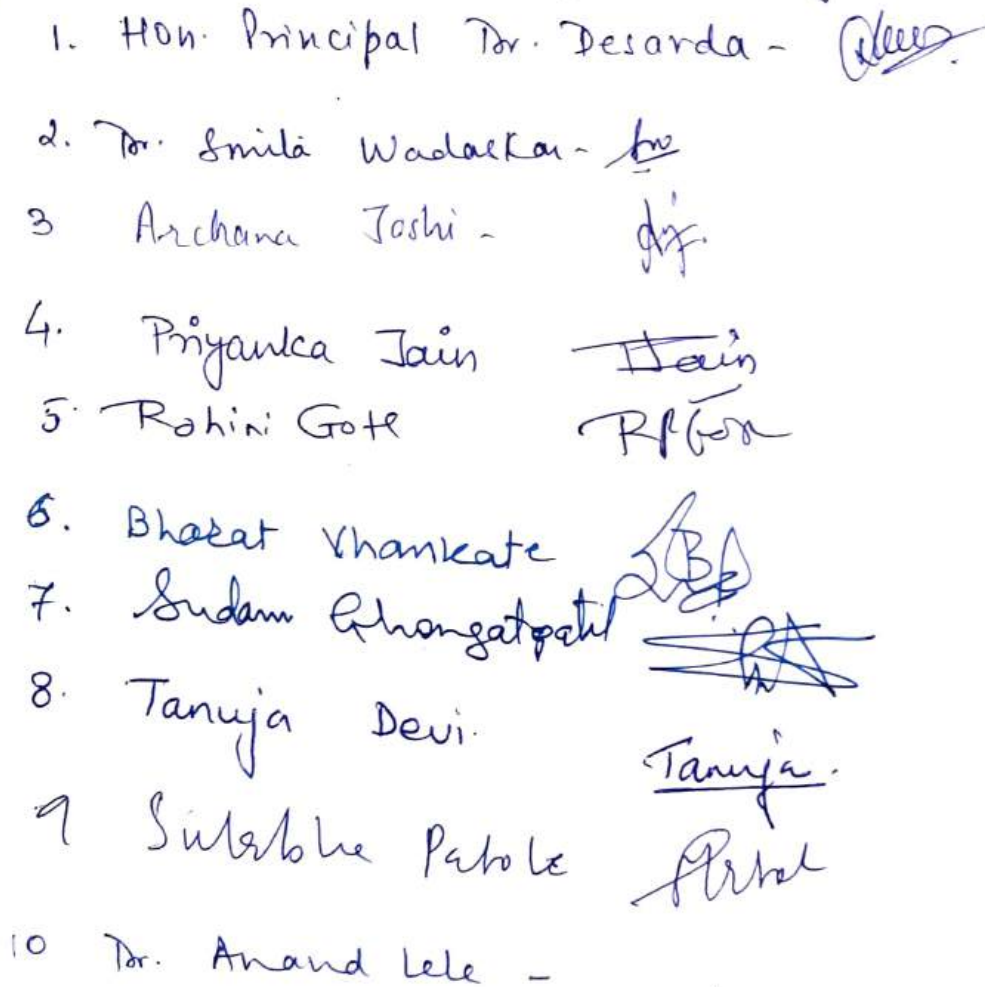 1. Hon. Principal Dr. Desarda -
2. Dr. Smita Wadaskar -
3 Archana Joshi -
4. Priyanka Jain Jain
5. Rohini Gote
6. Bharat Vhankate
7. Sudam Ghongatepatil
8. Tanuja Devi. Tanuja.
9 Sulabha Patole
10 Dr. Anand Lele -